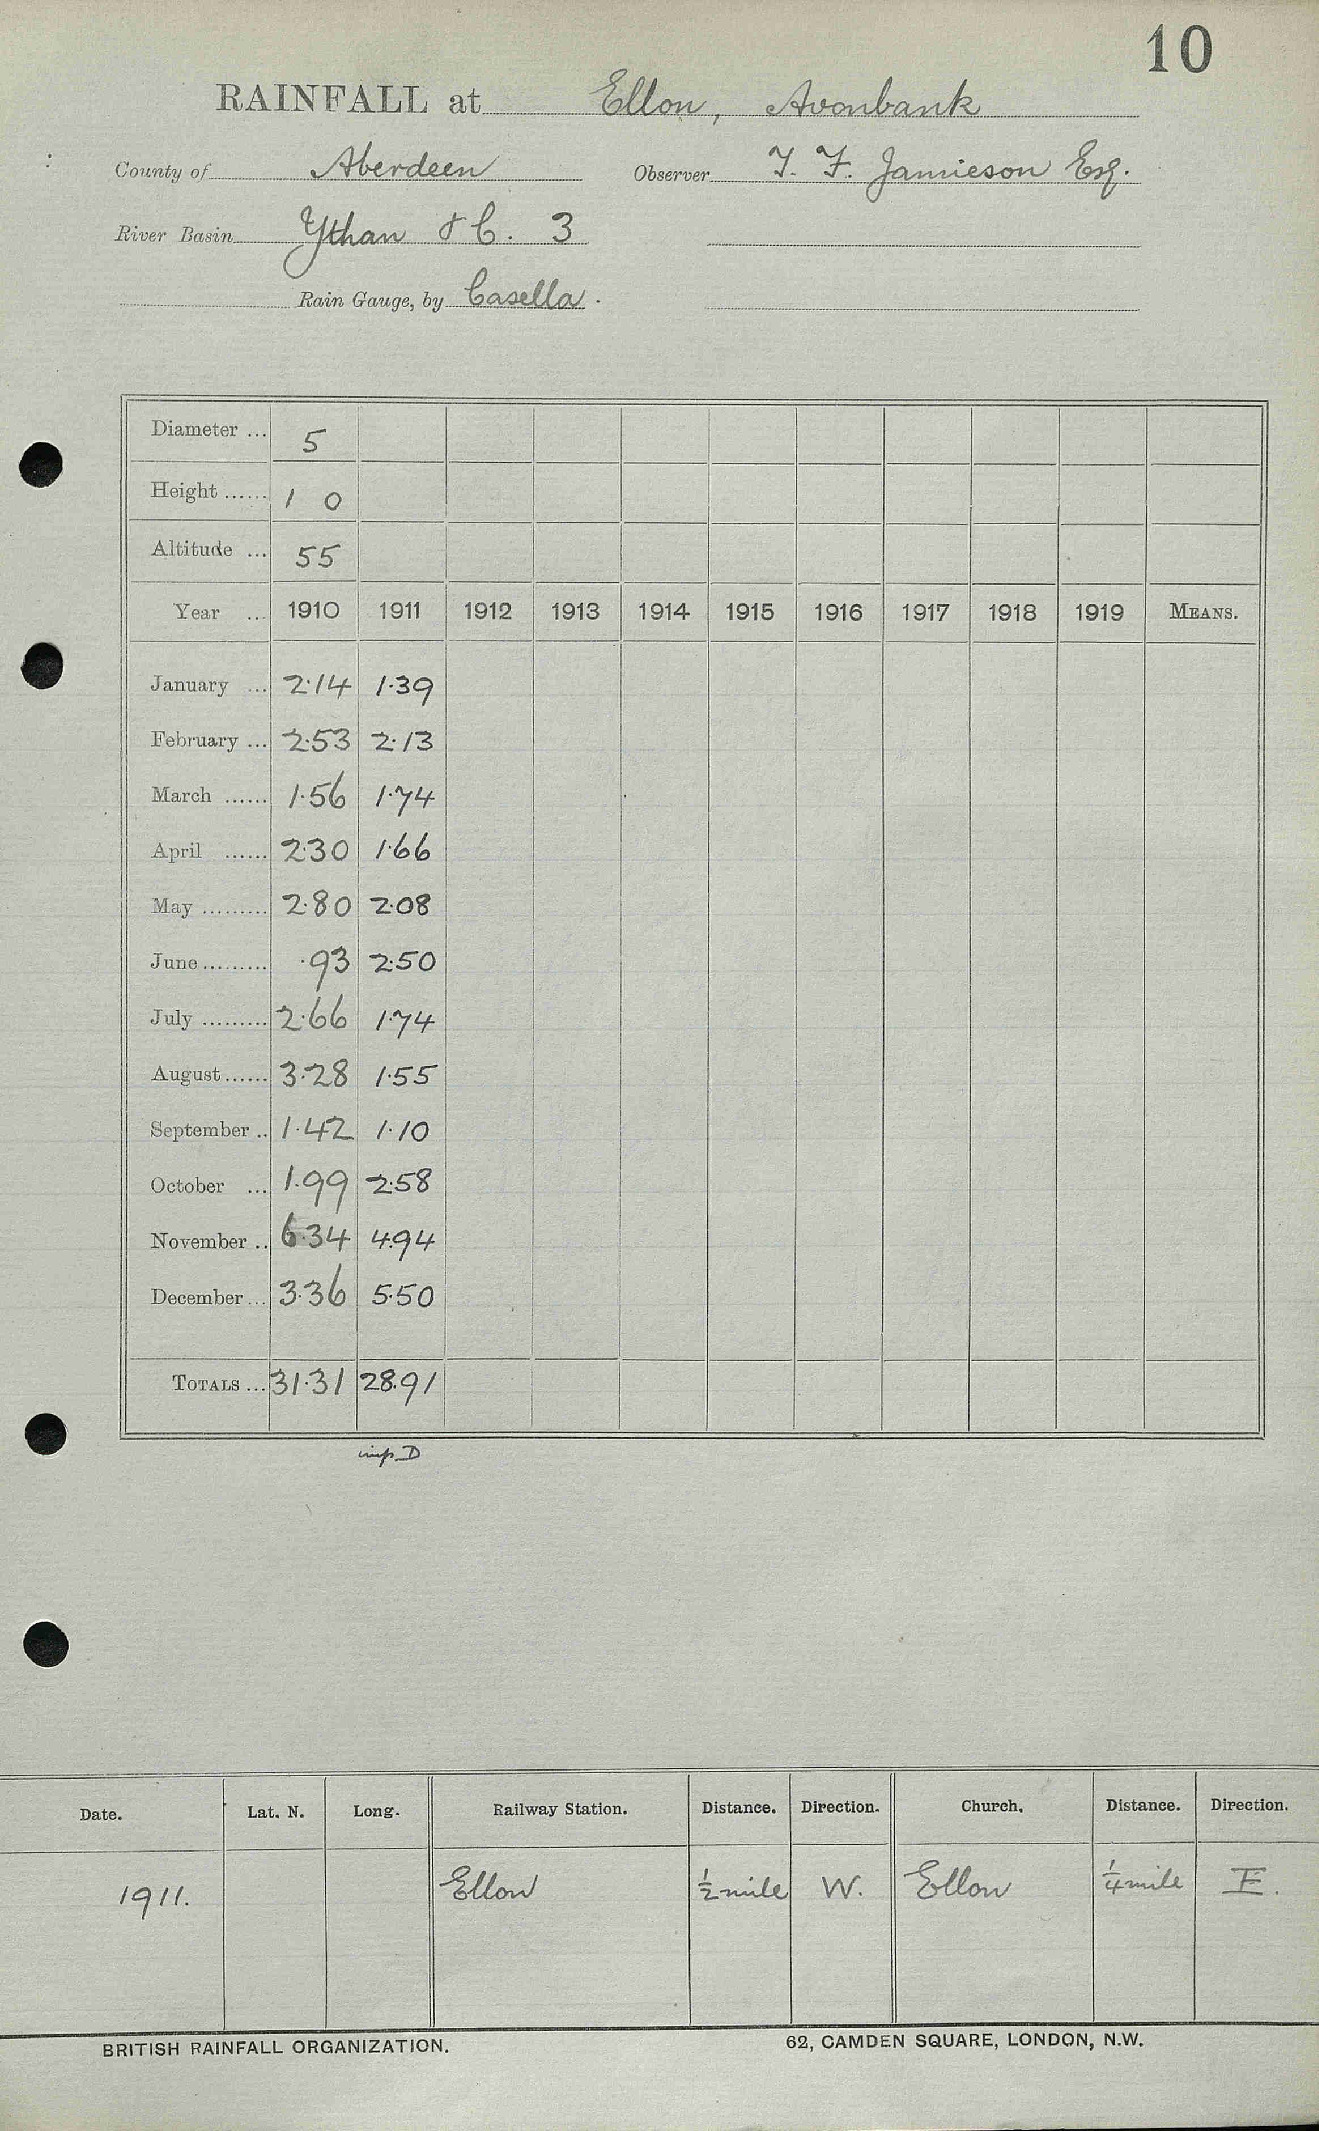 10
RAINFALL at Ellon, Avonbank
County of Aberdeen Observer T. F. Jamieson Esq.
River Basin Ythan &c. 3
Rain Gauge, by Casella.
Diameter ... 5
Height ...... 1 0
Altitude ... 55
Year ... 1910 1911 1912 1913 1914 1915 1916 1917 1918 1919 MEANS.
January ... 2.14 1.39
February ... 2.53 2.13
March ...... 1.56 1.74
April ...... 2.30 1.66
May ......... 2.80 2.08
June ......... .93 2.50
July ......... 2.66 1.74
August ...... 3.28 1.55
September .. 1.42 1.10
October ... 1.99 2.58
November .. 6.34 4.94
December ... 3.36 5.50
TOTALS ... 31.31 28.91
imp. D
Date. Lat. N. Long. Railway Station. Distance. Direction. Church. Distance. Direction.
1911. Ellon ½ mile W. Ellon ¼ mile E.
BRITISH RAINFALL ORGANIZATION. 62, CAMDEN SQUARE, LONDON, N.W.